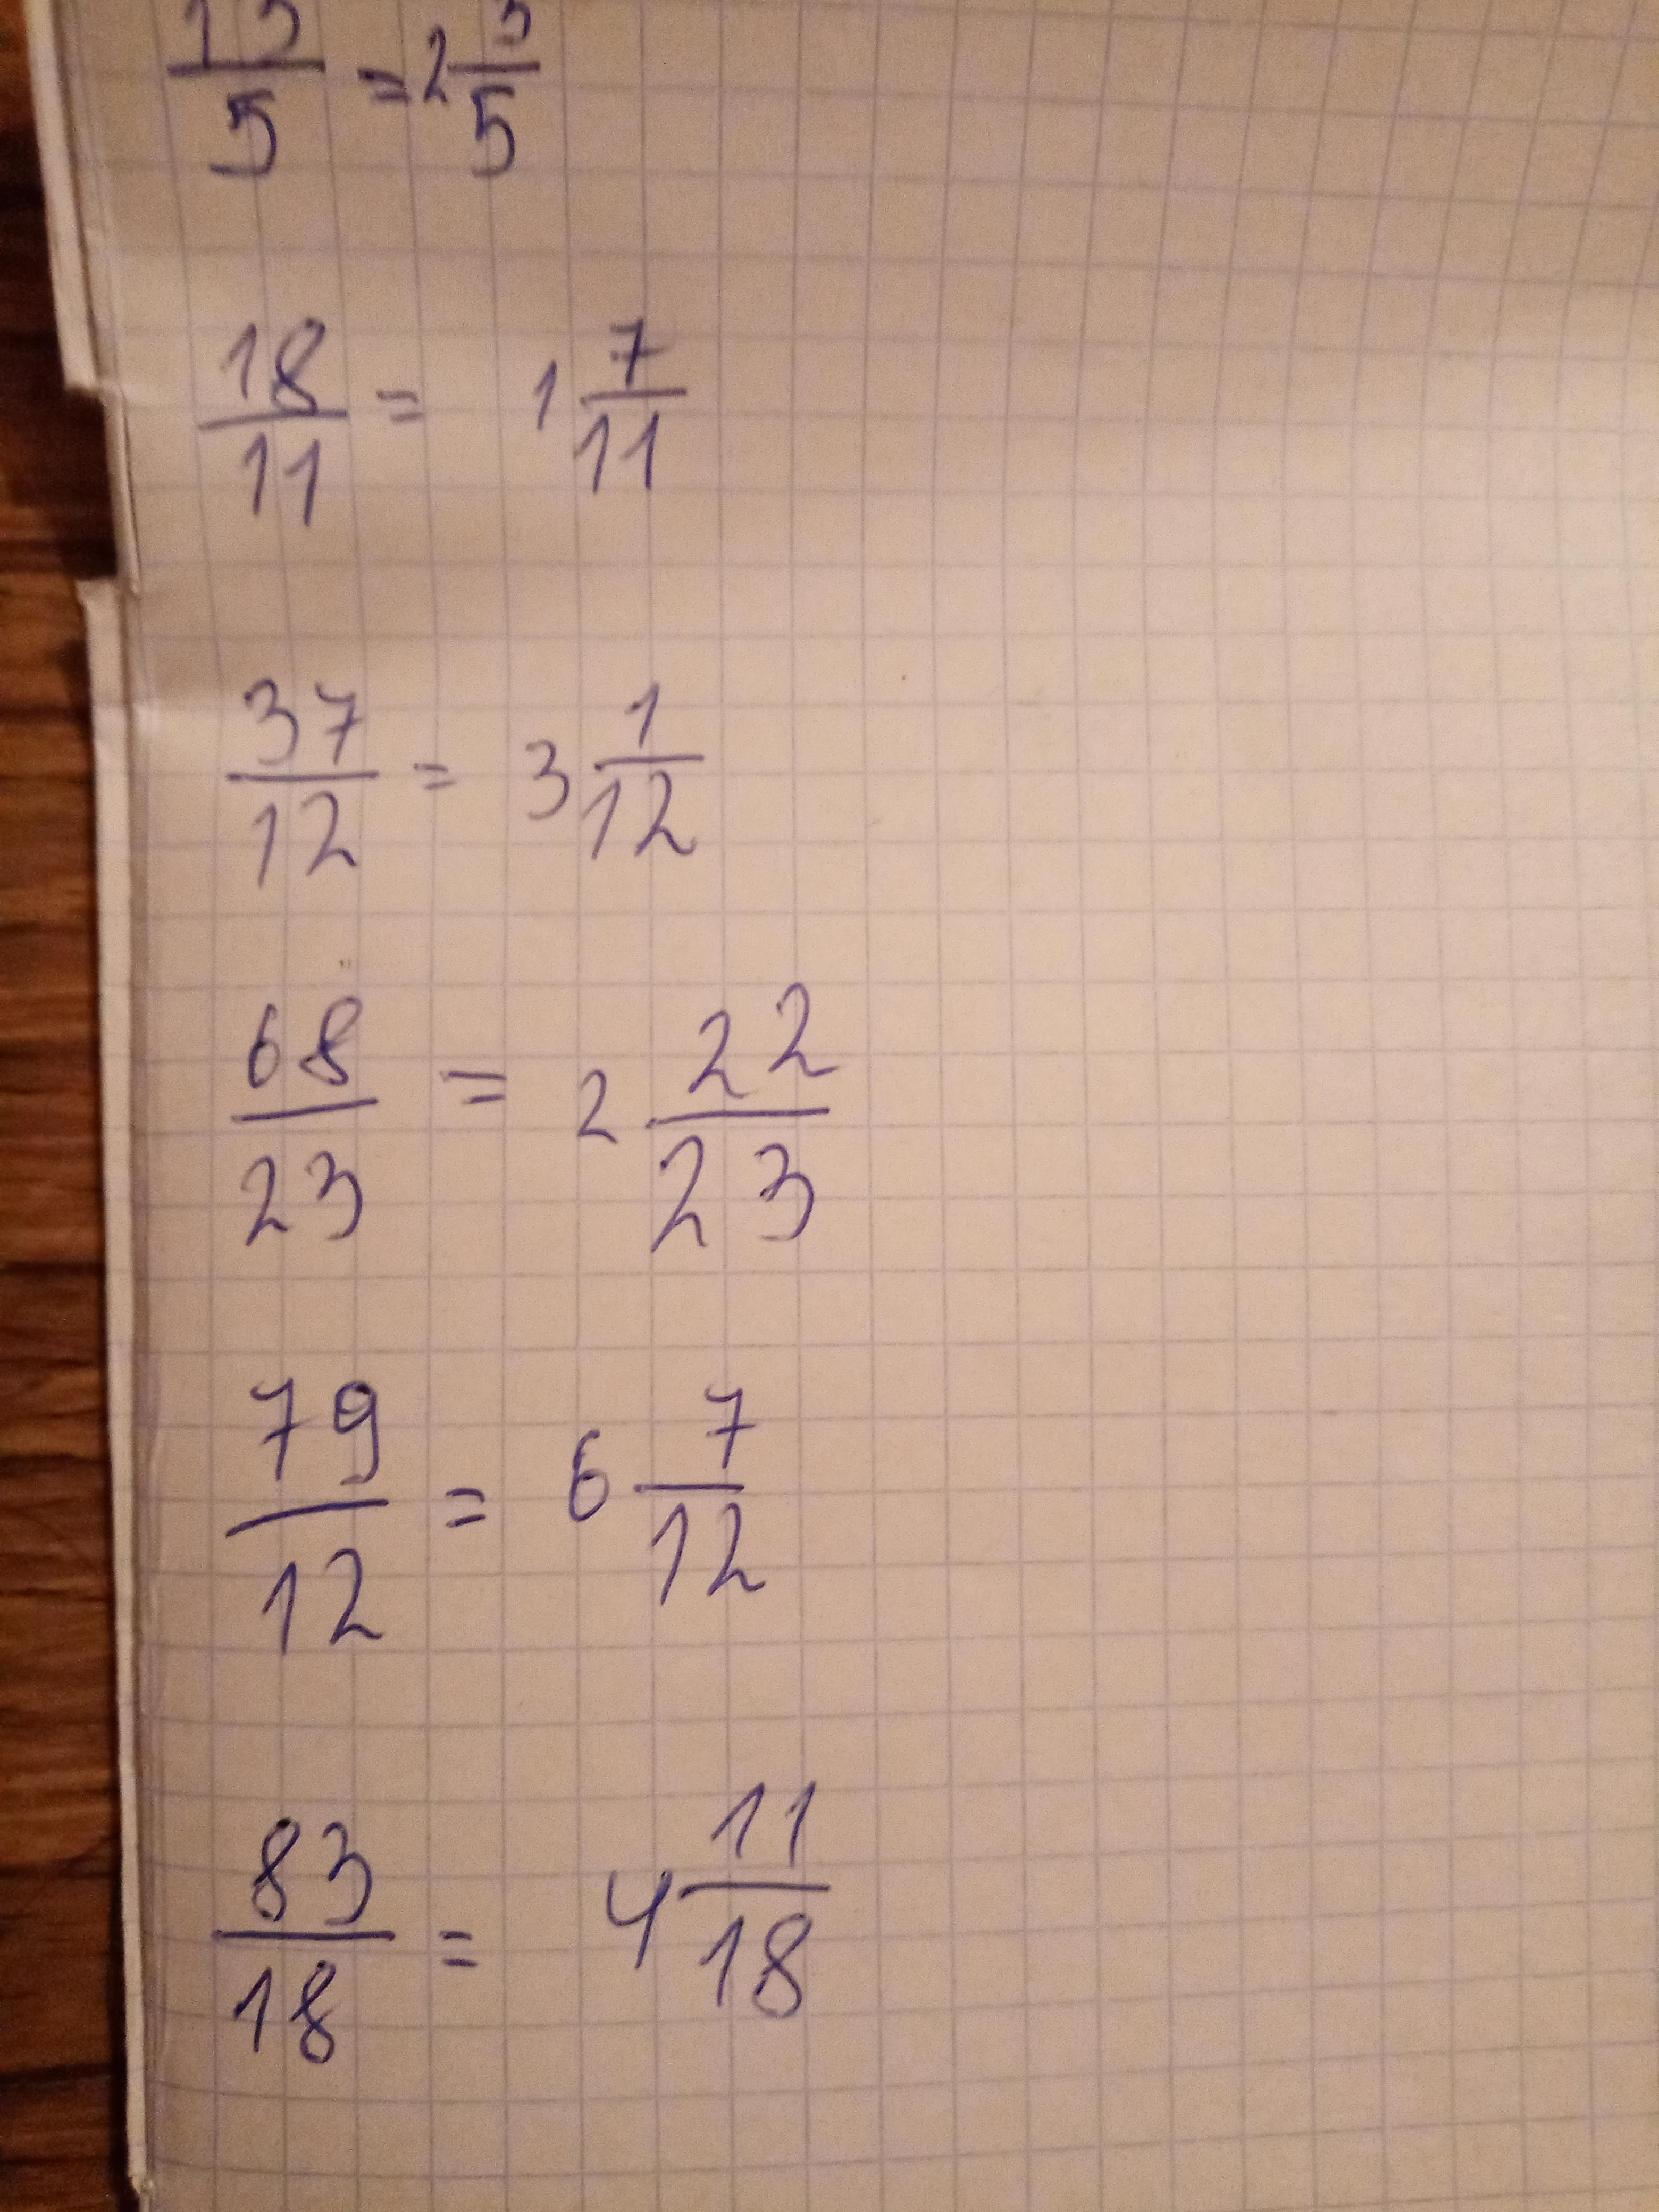 13/5 = 2 3/5
18/11 = 1 7/11
37/12 = 3 1/12
68/23 = 2 22/23
79/12 = 6 7/12
83/18 = 4 11/18